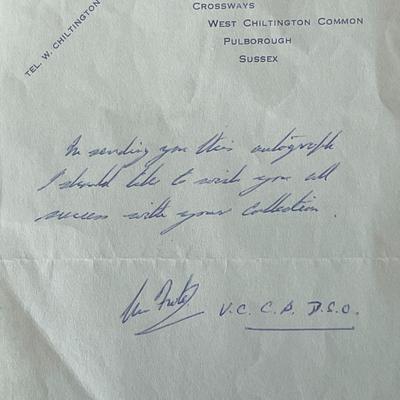 CROSSWAYS
WEST CHILTINGTON COMMON
PULBOROUGH
SUSSEX
TEL. W. CHILTINGTON
In sending you this autograph
I should like to wish you all
success with your collection.
V.C. C.B. D.S.O.